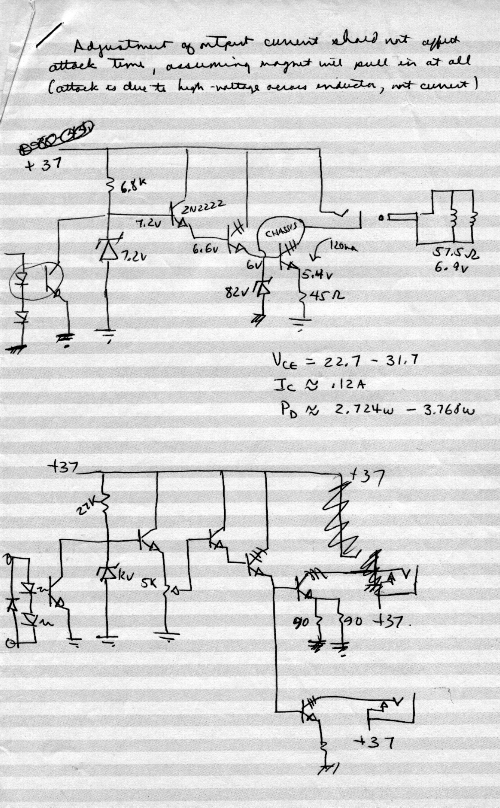 Adjustment of output current should not affect
attack time, assuming magnet will pull in at all
(attack is due to high-voltage across inductor, not current)
+37
6.8K
2N2222
7.2V
7.2V
6.6V
CHASSIS
6V
120ma
5.4V
82V
45Ω
57.5Ω
6.9V
VCE = 22.7 - 31.7
IC ≈ .12A
PD ≈ 2.724W - 3.768W
+37
+37
27K
5K
90
90
+37.
+37